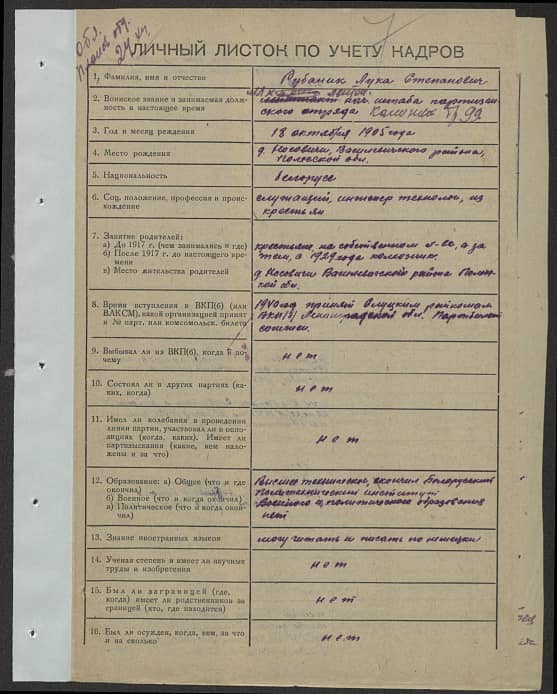 Обл.
24
ЛИЧНЫЙ ЛИСТОК ПО УЧЕТУ КАДРОВ
1. Фамилия, имя и отчество
Рубаник Лука Степанович
2. Воинское звание и занимаемая долж-
ность в настоящее время
нач. штаба партизан-
ского отряда
3. Год и месяц рождения
18 октября 1905 года
4. Место рождения
д. Носовичи, района,
Полесской обл.
5. Национальность
белорусс
6. Соц. положение, профессия и проис-
хождение
служащий, инженер технолог, из
крестьян
7. Занятие родителей:
а) До 1917 г. (чем занимались и где)
б) После 1917 г. до настоящего вре-
мени
в) Место жительства родителей
крестьяне, на собственном а за
тем, с 1929 года колхозник.
д. Носовичи района Полес-
кой обл.
8. Время вступления в ВКП(б) (или
ВЛКСМ), какой организацией принят
и № карт. или комсомольск. билета
1940 год принят райкомом
ВКП(б) Ленинградской обл.
9. Выбывал ли из ВКП(б), когда и по-
чему
нет
10. Состоял ли в других партиях (ка-
ких, когда)
нет
11. Имел ли колебания в проведении
линии партии, участвовал ли в оппо-
зициях (когда, каких). Имеет ли
партвзыскания (какие, кем нало-
жены и за что)
нет
12. Образование: а) Общее (что и где
окончил)
б) Военное (что и когда окончил)
в) Политическое (что и когда окон-
чил)
Высшее техническое, окончил Белорусский
Политехнический институт
Военного и политического образования
нет
13. Знание иностранных языков
могу читать и писать по немецки
14. Ученая степень и имеет ли научных
труды и изобретения
нет
15. Был ли заграницей (где,
когда) имеет ли родственников за
границей (кто, где находится)
нет
16. Был ли осужден, когда, кем, за что
и на сколько
нет